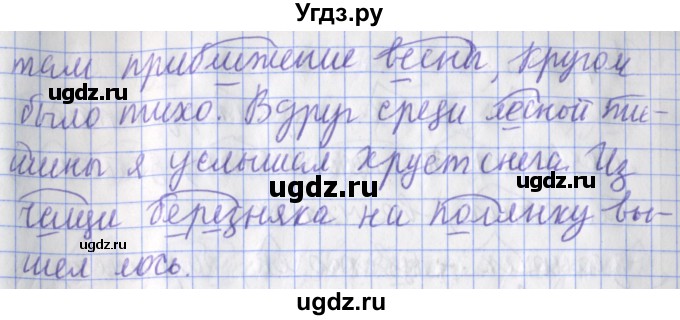 Угдз.ру
там приближение весны, кругом
было тихо. Вдруг среди лесной ти-
шины я услышал хруст снега. Из
чащи березняка на полянку вы-
шел лось.
ugdz.ru
ugdz.ru
ugdz.ru
ugdz.ru
ugdz.ru
ugdz.ru
ugdz.ru
ugdz.ru